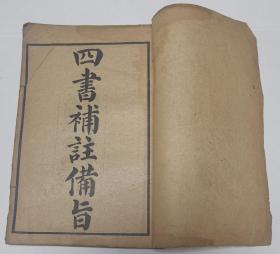 四書補註備旨